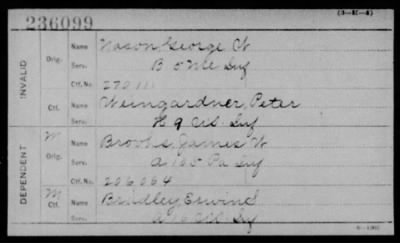 236099
(3-H-4)
INVALID
Orig.
Name Nason, George W
Serv. B 9 Me Inf
Ctf. No. 270 111
Ctf.
Name Weingardner, Peter
Serv. H 9 US Inf
DEPENDENT
M
Orig.
Name Brooks, James W
Serv. A 105 Pa Inf
Ctf. No. 206,064
M
Ctf.
Name Bradley, Erwin S
Serv. A 16 US Inf